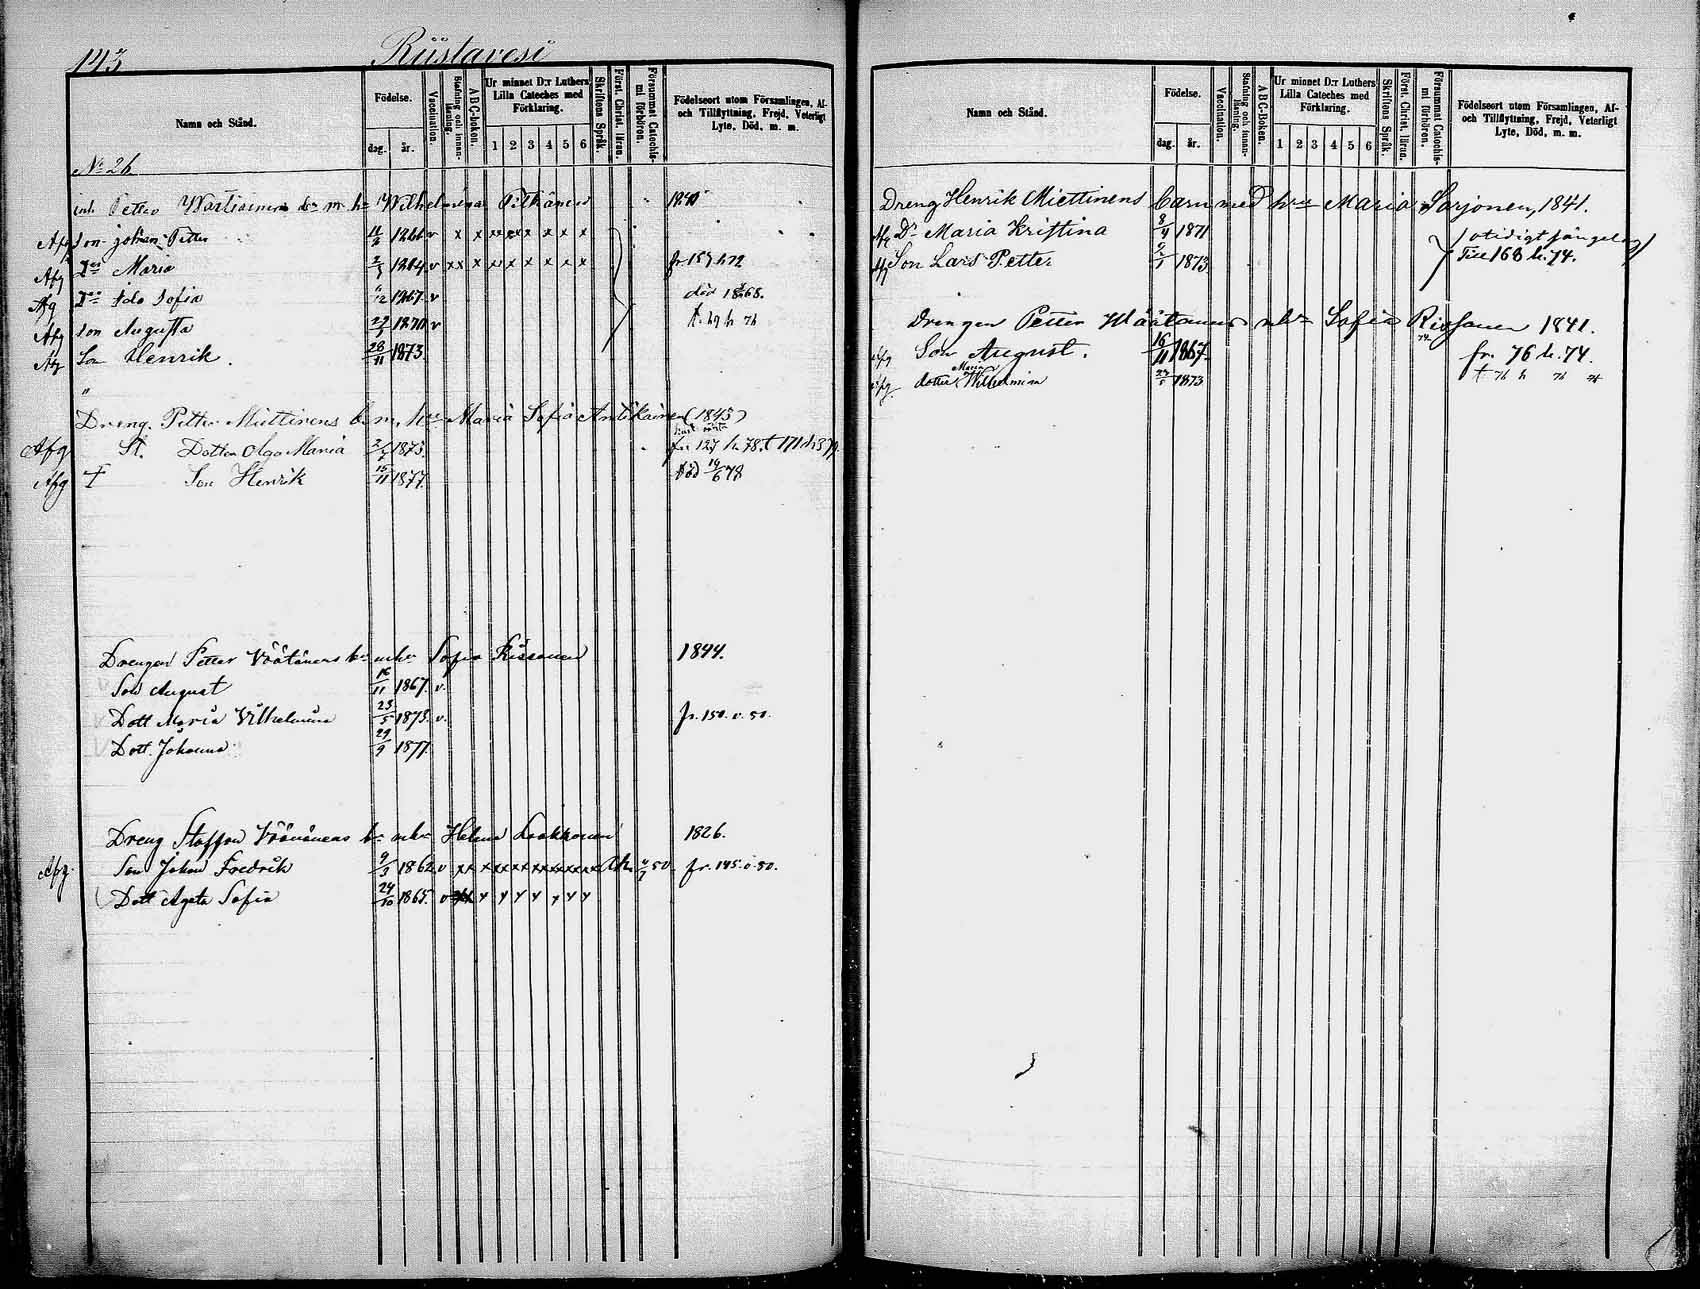 143 Riistavesi
Namn och Stånd.
Födelse.
dag. år.
Vaccination.
Stafning och innanläsning.
ABC-boken.
Ur minnet D:r Luthers Lilla Cateches med Förklaring.
1 2 3 4 5 6
Skriftens Språk.
Först. Christ. läran.
Försummat Catechismi förhören.
Födelseort utom Församlingen, Af- och Tillflyttning, Frejd, Veterligt Lyte, Död, m. m.
No 26
inh. Petter Wartiainens bn m. h. Wilhelmina Pitkänen 1840
Afg Son johan Petter v x x x x x x x x
Afg Dr Maria v x x x x x x x x fr 157 h 72
Afg Dr Ida Sofia 12 1867 v död 1868.
Afg Son Augusta 1870 v t. 79 h 76
Afg Son Henrik. 28/11 1873.
Dreng. Petter Miettinens b. m. hu Maria Sofia Antikainen (1845)
Afg St. Dotter Olga Maria 1875. fr. 127 h. 78. t 171 h 379.
Afg † Son Henrik 15/11 1877. död 19/6 78
Drengen Petter Väätänens bn mhu Sofia Rissanen 1844.
Son August 16/11 1867. v.
Dott Maria Vilhelmina 23/5 1873. v. fr. 150. v. 80.
Dott. Johanna 29/9 1877.
Dreng Staffan Väänänens bn mhu Helena Laakkonen 1826.
Afg. Son Johan Fredrik 9/3 1862 v fr. 145. v. 80.
Dott Agata Sofia 24/10 1865. v
Namn och Stånd.
Födelse.
dag. år.
Vaccination.
Stafning och innanläsning.
ABC-boken.
Ur minnet D:r Luthers Lilla Cateches med Förklaring.
1 2 3 4 5 6
Skriftens Språk.
Först. Christ. läran.
Försummat Catechismi förhören.
Födelseort utom Församlingen, Af- och Tillflyttning, Frejd, Veterligt Lyte, Död, m. m.
Dreng Henrik Miettinens barn med hu Maria Sarjonen, 1841.
Afg Dr Maria Kristina 8/4 1871
Afg Son Lars Petter 1873 Till 168 h. 74.
Drengen Petter Väätänens mhu Sofia Rissanen 1841.
Afg Son August. 16/11 1867 fr. 76 h. 74.
Afg. dotter Maria Wilhelmina 23/5 1873 t 76 h 76